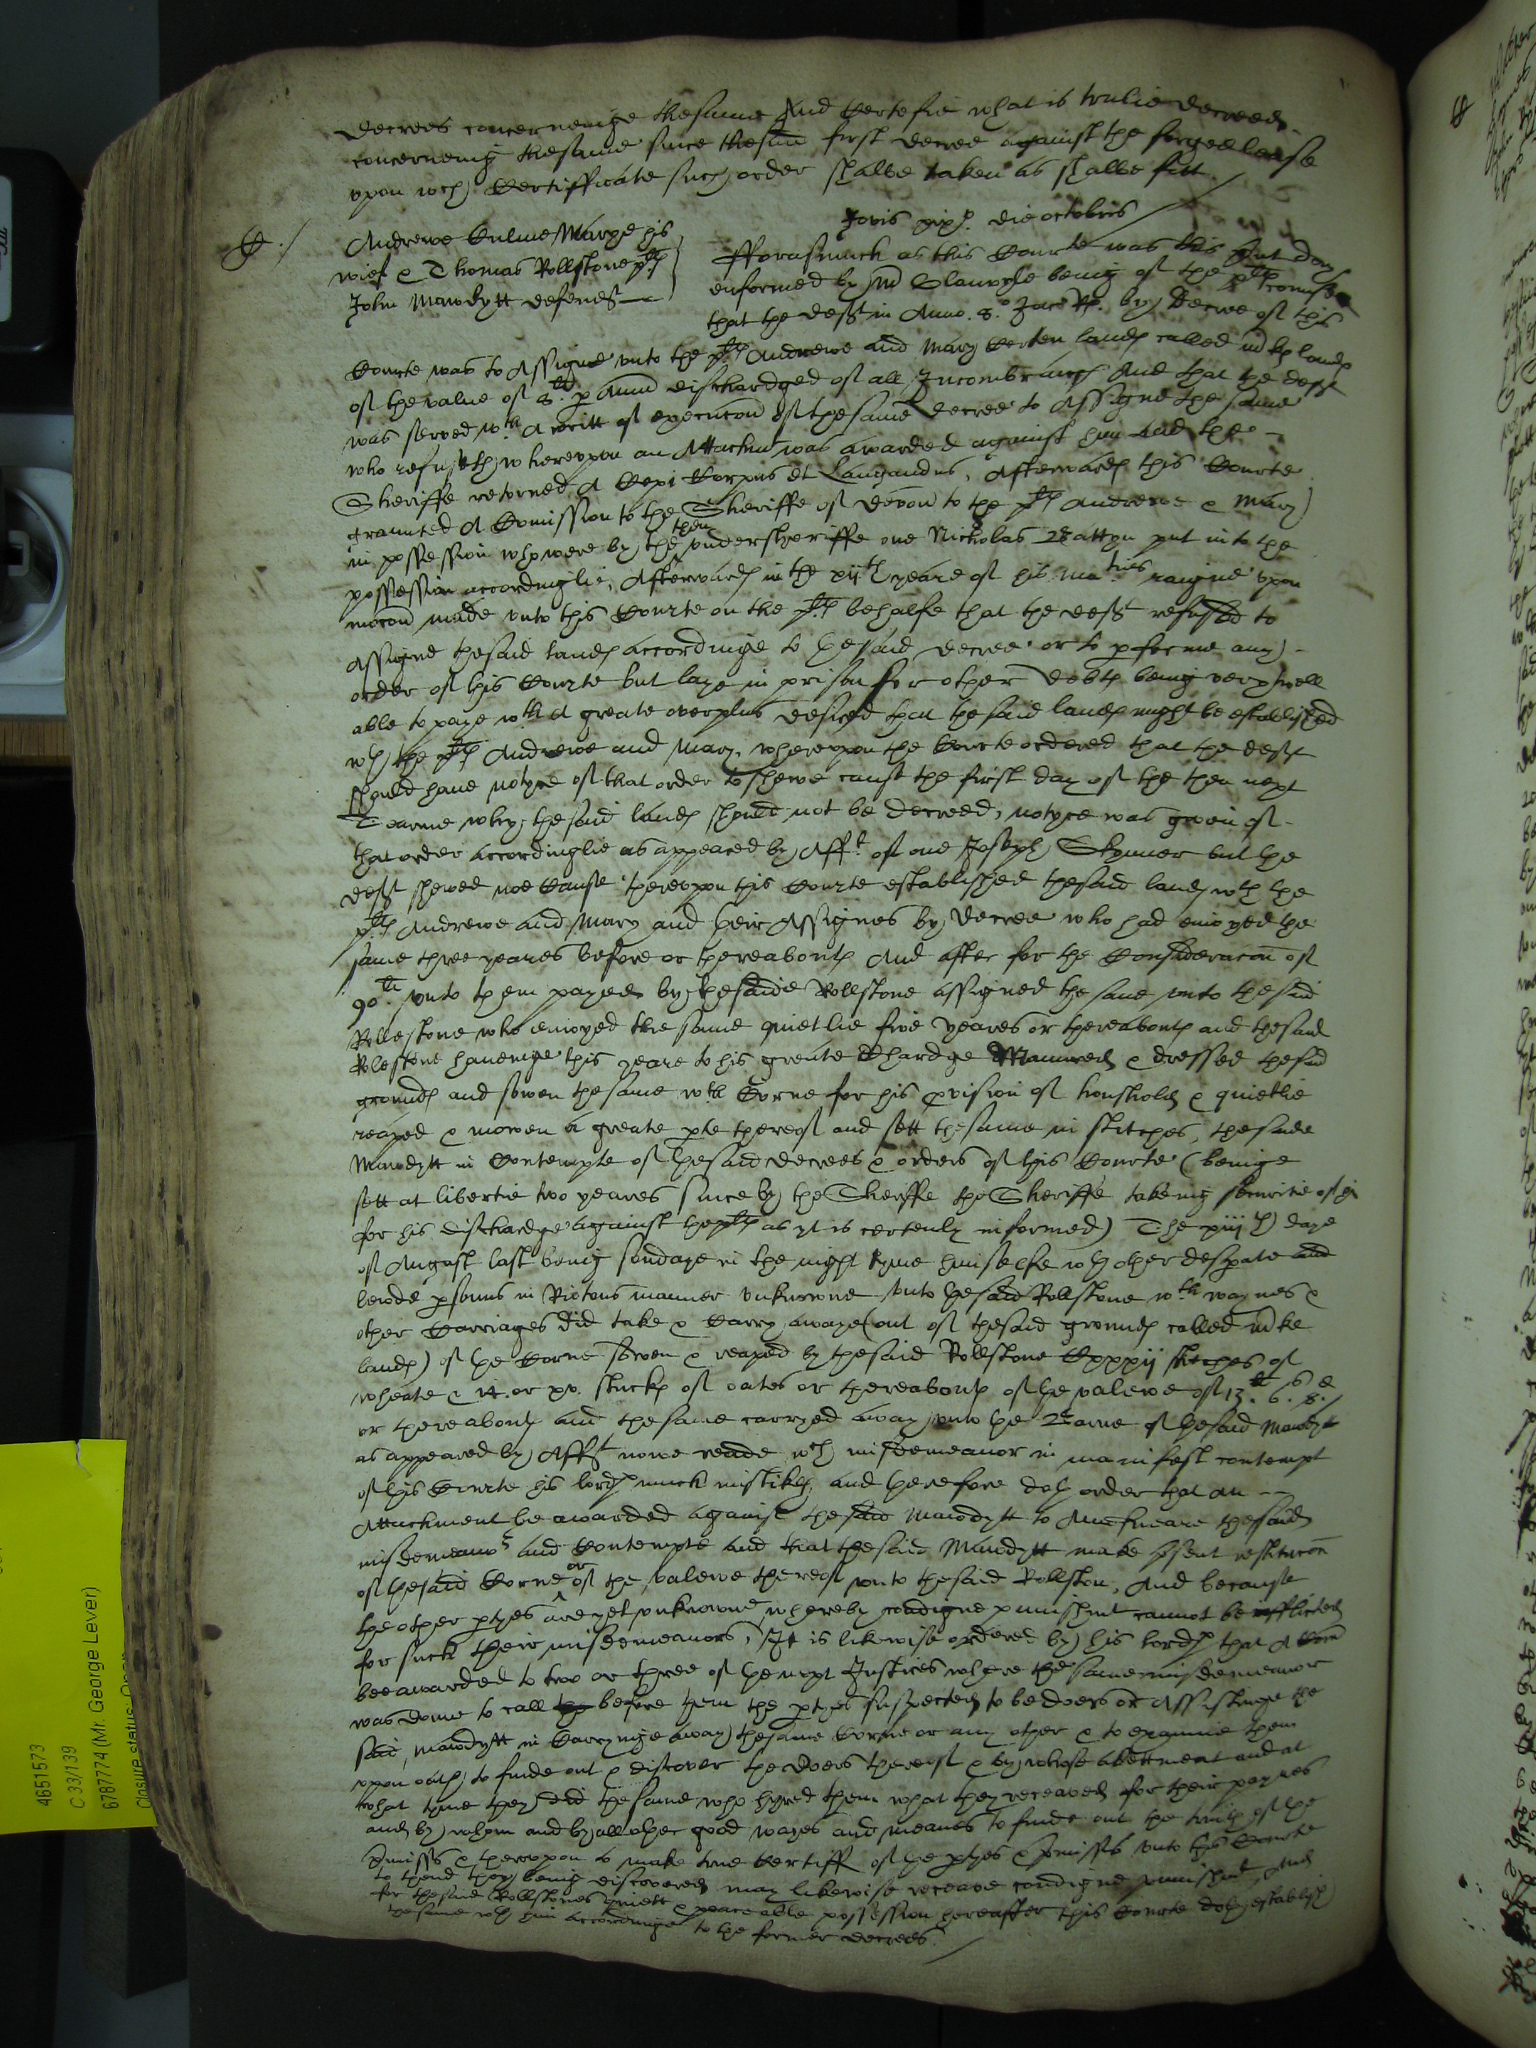 decrees concerneinge thesame And Certefie what is trulie decreed
concerneing thesame since thesaid first decree against the forged lease
vpon wch Certifficate such order shalbe taken as shalbe fitt
Jovis xixo die octobris
Andrewe Culme Marye his
wief & Thomas Rollstone plts
John Mawdytt defendt
fforasmuch as this Courte was this pnt day
enformed by Mr Glanvyle being of the plts
that the deft in Anno 8o Jaco Rs by decree of this
Courte was to Assigne vnto the plts Andrewe and Mary certen landes called landes
of the value of 8li p Annu dischardged of all Incombrances And that the deft
was served wth A writt of execucon of thesame decree to Assigne the same
who refuseth whereupon an Attachmt was awarded against him and the
Sheriffe retorned A Cepi Corpus et Languidus, Afterwardes this Courte
graunted A Comission to the Sheriffe of Devon to the plts Andrewe & Mary
in possession who were by the then vndersheriffe one Nicholas Battyn put into the
possession accordinglie, Afterwardes in the xijth yeare of his maties raigne vpon
mocon made vnto this Courte on the plts behalfe that the deft refused to
Assigne thesaid landes accordinge to thesaid decree or to pforme any
order of this Courte but laye in prison for other debts being very well
able to paye wth A greate overplus desired that thesaid landes might be established
wth the plts Andrewe and Mary, wherevpon the Courte ordered that the deft
should have notyce of that order to shewe cause the first day of the then next
Tearme why thesaid landes should not be decreed, notyce was given of
that order accordinglie as appeared by Afft of one Joseph Skynner but the
deft shewed noe Cause therevpon this Courte established thesaid landes wth the
plts Andrewe and Mary and their Assignes by decree who had enioyed the
same three yeares before or thereabouts And after for the Consideracon of
90li vnto them payed by thesaide Rollstone assigned the same vnto thesaid
Rollestone who enioyed the same quietlie five yeares or thereabouts and thesaid
Rolestone haveinge this yeare to his greate Chardge Manured & dressed thesaid
groundes and sowen thesame wth Corne for his pvision of houshold & quietlie
reaped & mowen a greate pte thereof and sett thesame in stitches, thesaide
Mawdytt in Contempte of thesaid decrees & orders of this Courte (beinge
sett at libertie two yeares since by the Sheriffe the Sheriffe takeing securitie of hi
for his dischardge against the plts as yt is certenly informed) The xiijth daye
of August last being sondaye in the night tyme himselfe wth other desperate and
lewde psonns in Riotous manner vnknowne vnto thesaid Rollstone wth waynes &
other Carriages did take & Carry awaye (out of thesaid groundes called
landes) of the Corne sowen & reaped by thesaid Rollstone stitches of
wheate & or xv. stuckes of oates or thereabouts of the valewe of 13li 6s 8d
or thereabouts and thesame carryed away vnto the Barne of thesaid Mawdytt
as appeared by Afft nowe reade wch misdemeanor in manifest contempt
of this Courte his lordp much mislikth and therefore doth order that an
Attachment be awarded against thesaid Mawdytt to Answeare thesaid
misdemeanor and Contempte and that thesaid Mawdytt make psent restitucon
of thesaid Corne or of the valewe thereof vnto thesaid Rollston, And because
the other ptyes are yet vnknowne whereby condigne punishmt cannot be inflicted
for such their misdemeanors, It is likewise ordered by his lordp that A Comn
bee awarded to two or three of the next Justices where the same misdemeanor
was done to call before them the ptyes suspected to be doers or Assistinge the
said Mawdytt in Carryinge away thesame Corne or any other & to examine them
vpon oath to finde out & discover the doers thereof & by whose abettment and at
what tyme they did thesame who hyred them what they receaved for their paynes
and by whom and by all other good wayes and meanes to finde out the truth of the
pmisses & therevpon to make true Certiff of the ptyes & pmisses vnto this Courte
to thend they being discovered may likewise receave condigne punishmt And
for thesaid Rollstones quiett & peaceable possession hereafter this Courte doth establish
thesame wth him accordinge to the former decrees.
4651573
C 33/139
6787774 (Mr. George Lever)
Closure status: Open